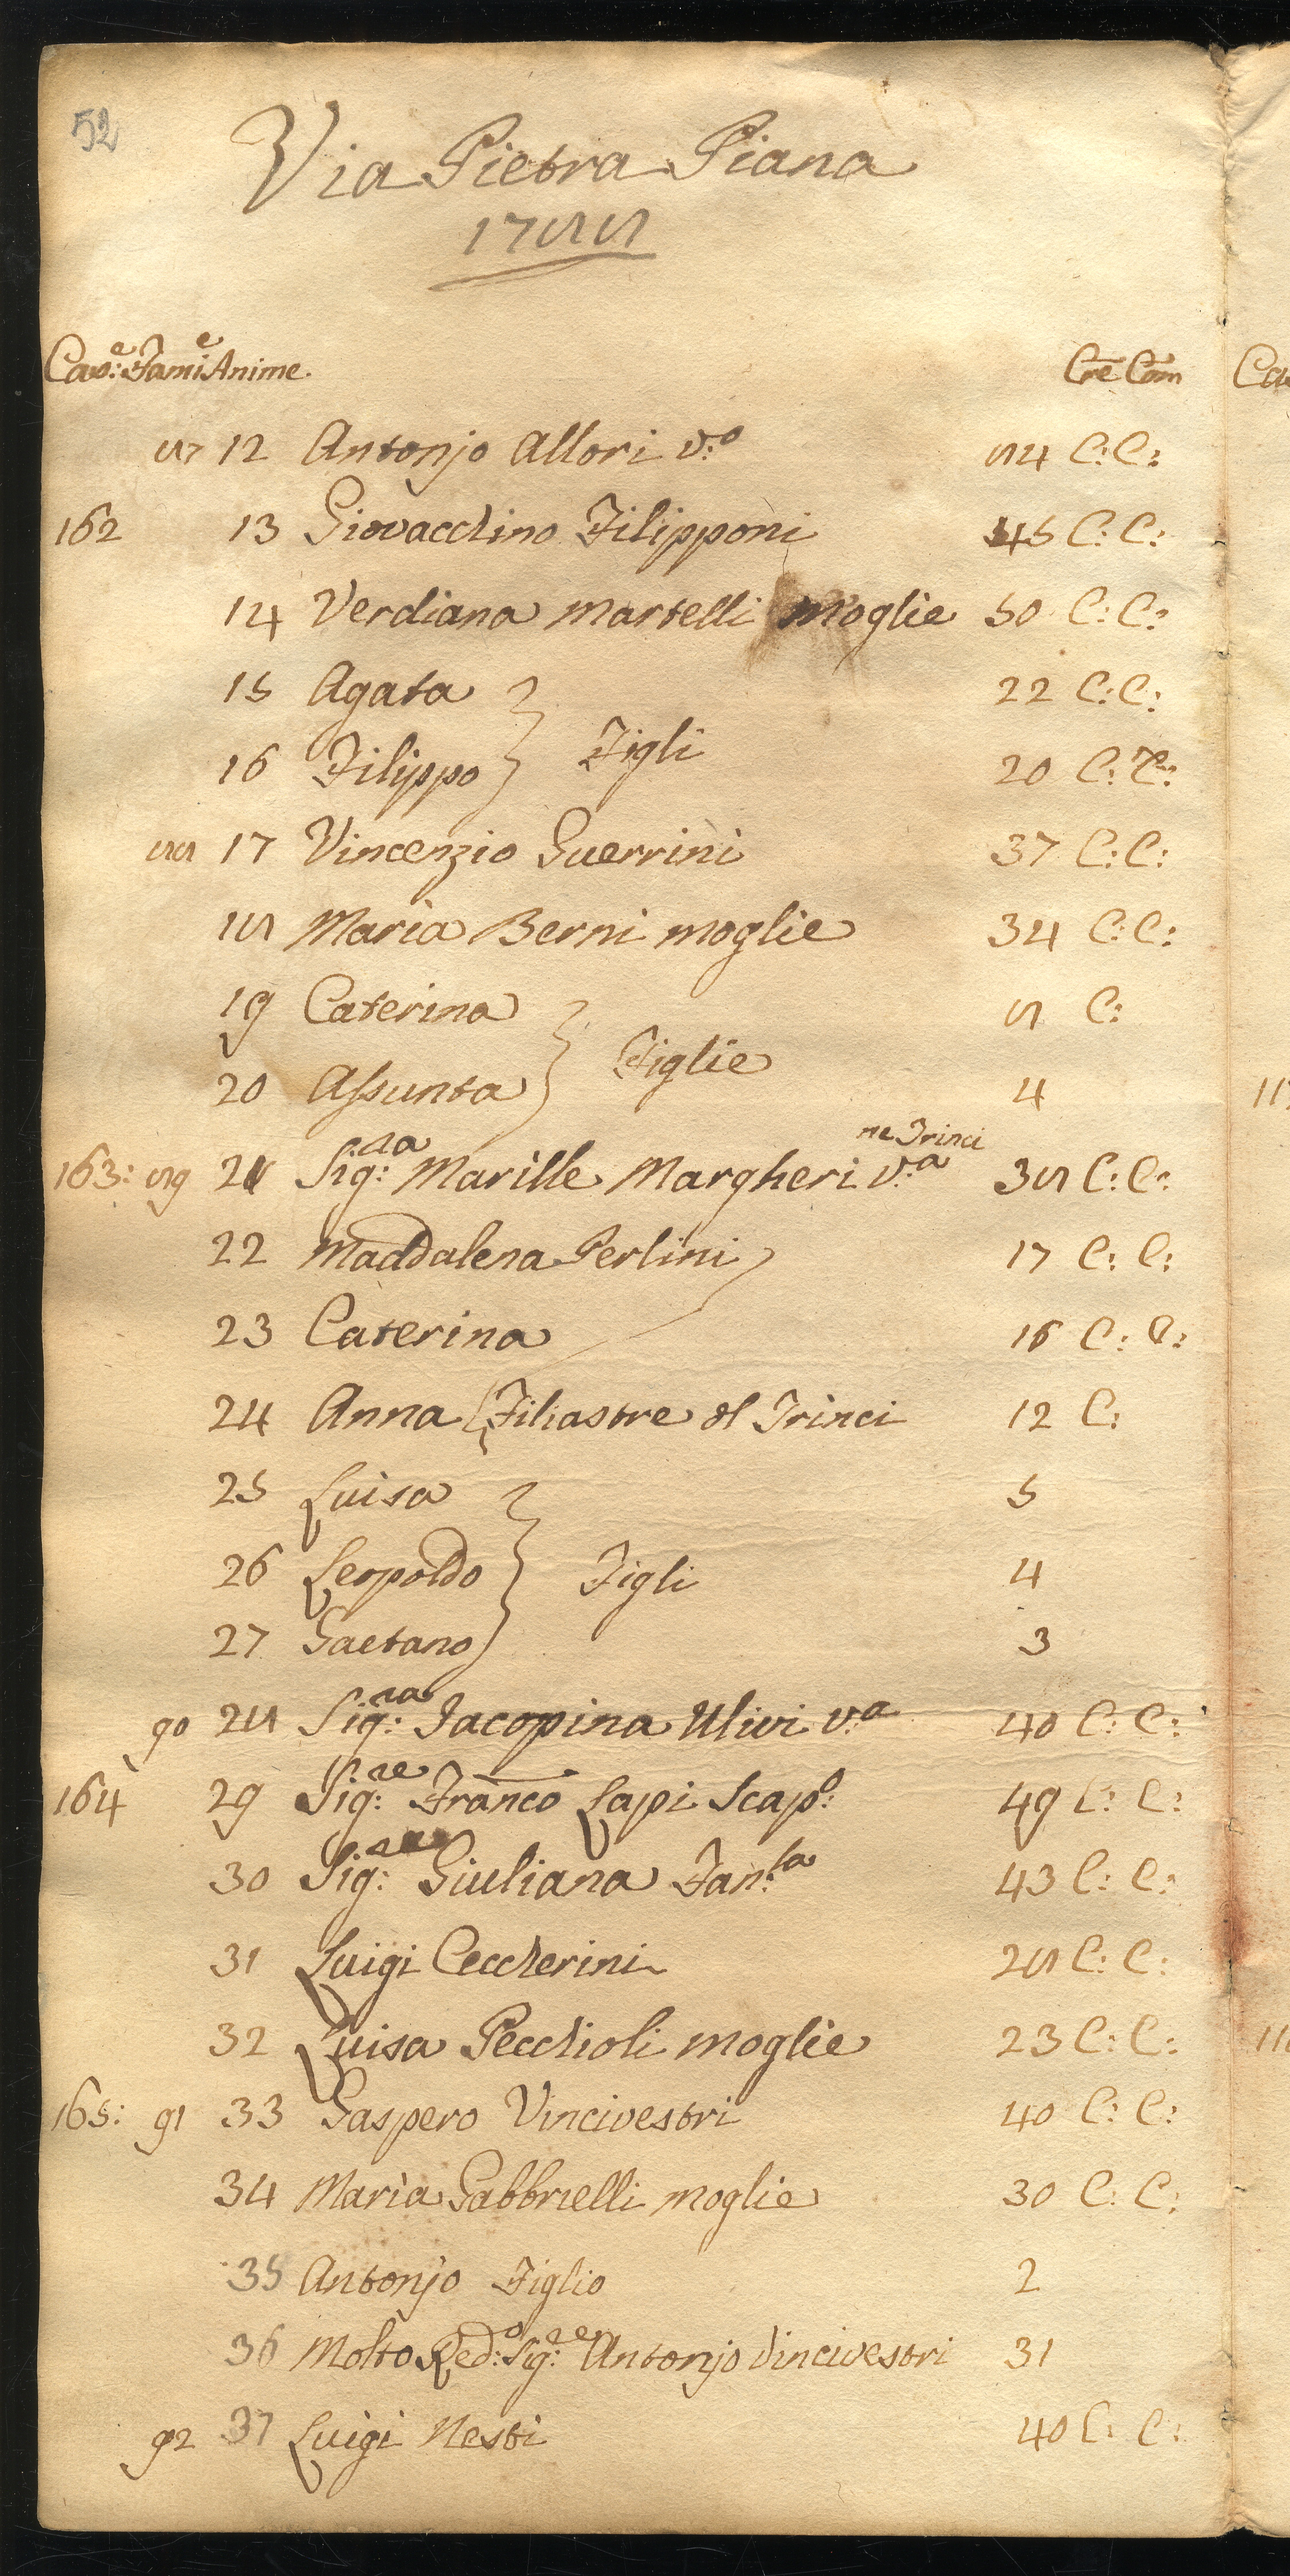 52
Via Pietra Piana
1788
Cas:e Fami:e Anime. Cre Com
87 12 Antonjo Allori v:o 84 C: C:
162 13 Giovacchino Filipponi 45 C: C:
14 Verdiana Martelli Moglie 50 C: C:
15 Agata 22 C: C:
16 Filippo } Figli 20 C: C:
88 17 Vincenzio Guerrini 37 C: C:
18 Maria Berni moglie 34 C: C:
19 Caterina 8 C:
20 Assunta } Figlie 4
ne Trinci
163: 89 21 Sig:ra Marille Margheri v:a 38 C: C:
22 Maddalena Perlini 17 C: C:
23 Caterina 16 C: C:
24 Anna { Filiastre dl Trinci 12 C:
25 Luisa 5
26 Leopoldo } Figli 4
27 Gaetano 3
90 28 Sig:ra Jacopina Ulivi v:a 40 C: C:
164 29 Sig:re Franco Lapi Scap:o 49 C: C:
30 Sig: Giuliana Fan:la 43 C: C:
31 Luigi Ceccherini 28 C: C:
32 Luisa Pecchioli moglie 23 C: C:
165: 91 33 Gaspero Vincivestri 40 C: C:
34 Maria Gabbrielli moglie 30 C: C:
35 Antonjo Figlio 2
36 Molto Red:o Sig:re Antonjo Vincivestri 31
92 37 Luigi Nesti 40 C: C: